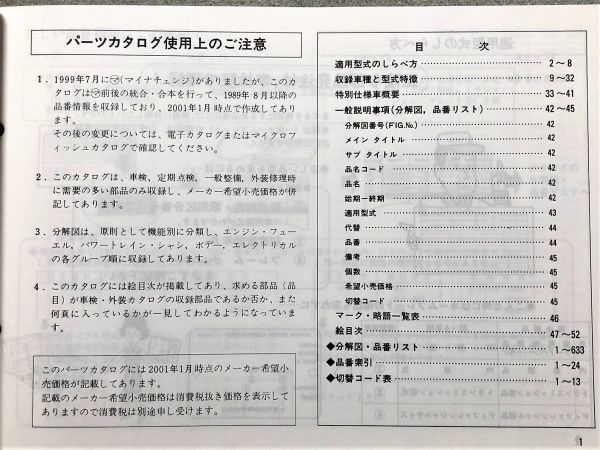 パーツカタログ使用上のご注意
1．1999年7月に㋮(マイナチェンジ)がありましたが、このカ
タログは㋮前後の統合・合本を行って、1989年8月以降の
品番情報を収録しており、2001年1月時点で作成してあり
ます。
その後の変更については、電子カタログまたはマイクロフ
ィッシュカタログで確認してください。
2．このカタログは、車検、定期点検、一般整備、外装修理時
に需要の多い部品のみ収録し、メーカー希望小売価格が併
記してあります。
3．分解図は、原則として機能別に分類し、エンジン・フュー
エル，パワートレイン・シャシ，ボデー，エレクトリカル
の各グループ順に収録してあります。
4．このカタログには絵目次が掲載してあり、求める部品（品
目）が車検・外装カタログの収録部品であるか否か、また
何頁に入っているかが一見してわかるようになっていま
す。
このパーツカタログには2001年1月時点のメーカー希望小
売価格が記載してあります。
記載のメーカー希望小売価格は消費税抜き価格を表示して
ありますので消費税は別途申し受けます。
目　次
適用型式のしらべ方 2～8
収録車種と型式特徴 9～32
特別仕様車概要 33～41
一般説明事項(分解図，品番リスト) 42～45
分解図番号(FIG.No.) 42
メイン タイトル 42
サブ タイトル 42
品名コード 42
品名 42
始期－終期 42
適用型式 43
代替 44
品番 44
備考 45
個数 45
希望小売価格 45
切替コード 45
マーク・略語一覧表 46
絵目次 47～52
◆分解図・品番リスト 1～633
◆品番索引 1～24
◆切替コード表 1～13
1